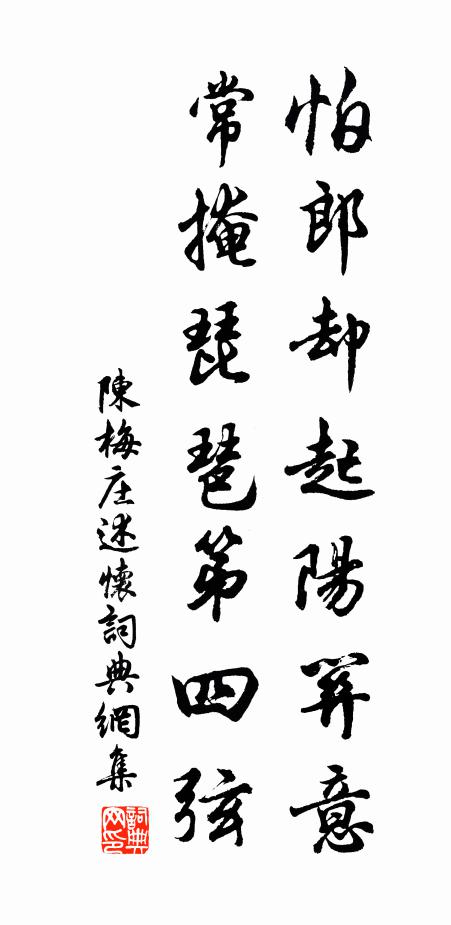 怕郎却起陽關意
常掩琵琶第四弦
陳梅庄述懷詞典網集
詞典网印